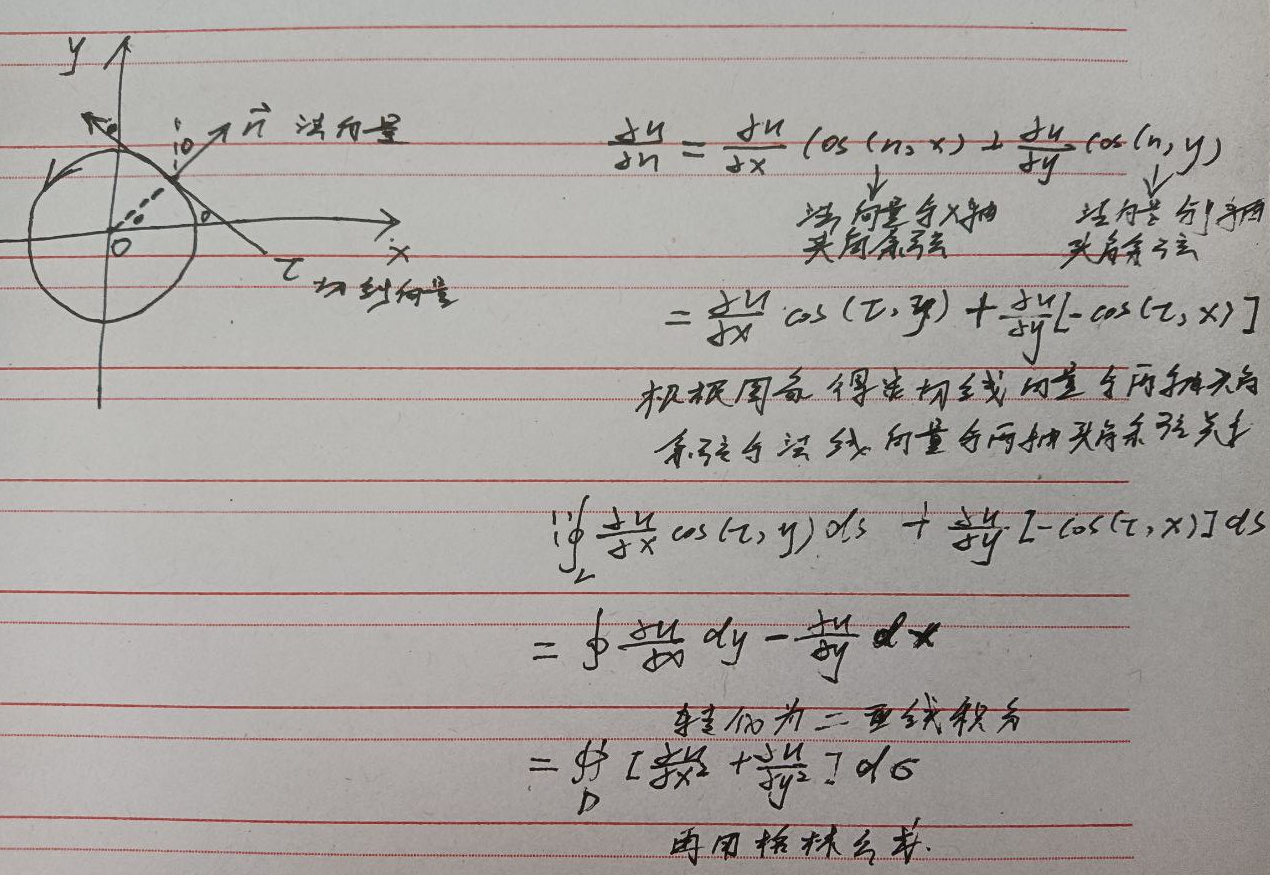 y
n⃗ 法向量
θ
θ
θ
θ
O
x
τ 切线向量
∂u/∂n = ∂u/∂x cos(n, x) + ∂u/∂y cos(n, y)
法向量与x轴 法向量与y轴
夹角余弦 夹角余弦
= ∂u/∂x cos(τ, y) + ∂u/∂y [-cos(τ, x)]
根据图可得出切线向量与两轴夹角
余弦与法线向量与两轴夹角余弦关系
∮_L ∂u/∂x cos(τ, y) ds + ∂u/∂y [-cos(τ, x)] ds
= ∮ ∂u/∂x dy - ∂u/∂y dx
转化为二重线积分
= ∯_D [∂u/∂x² + ∂u/∂y²] dσ
再用格林公式.